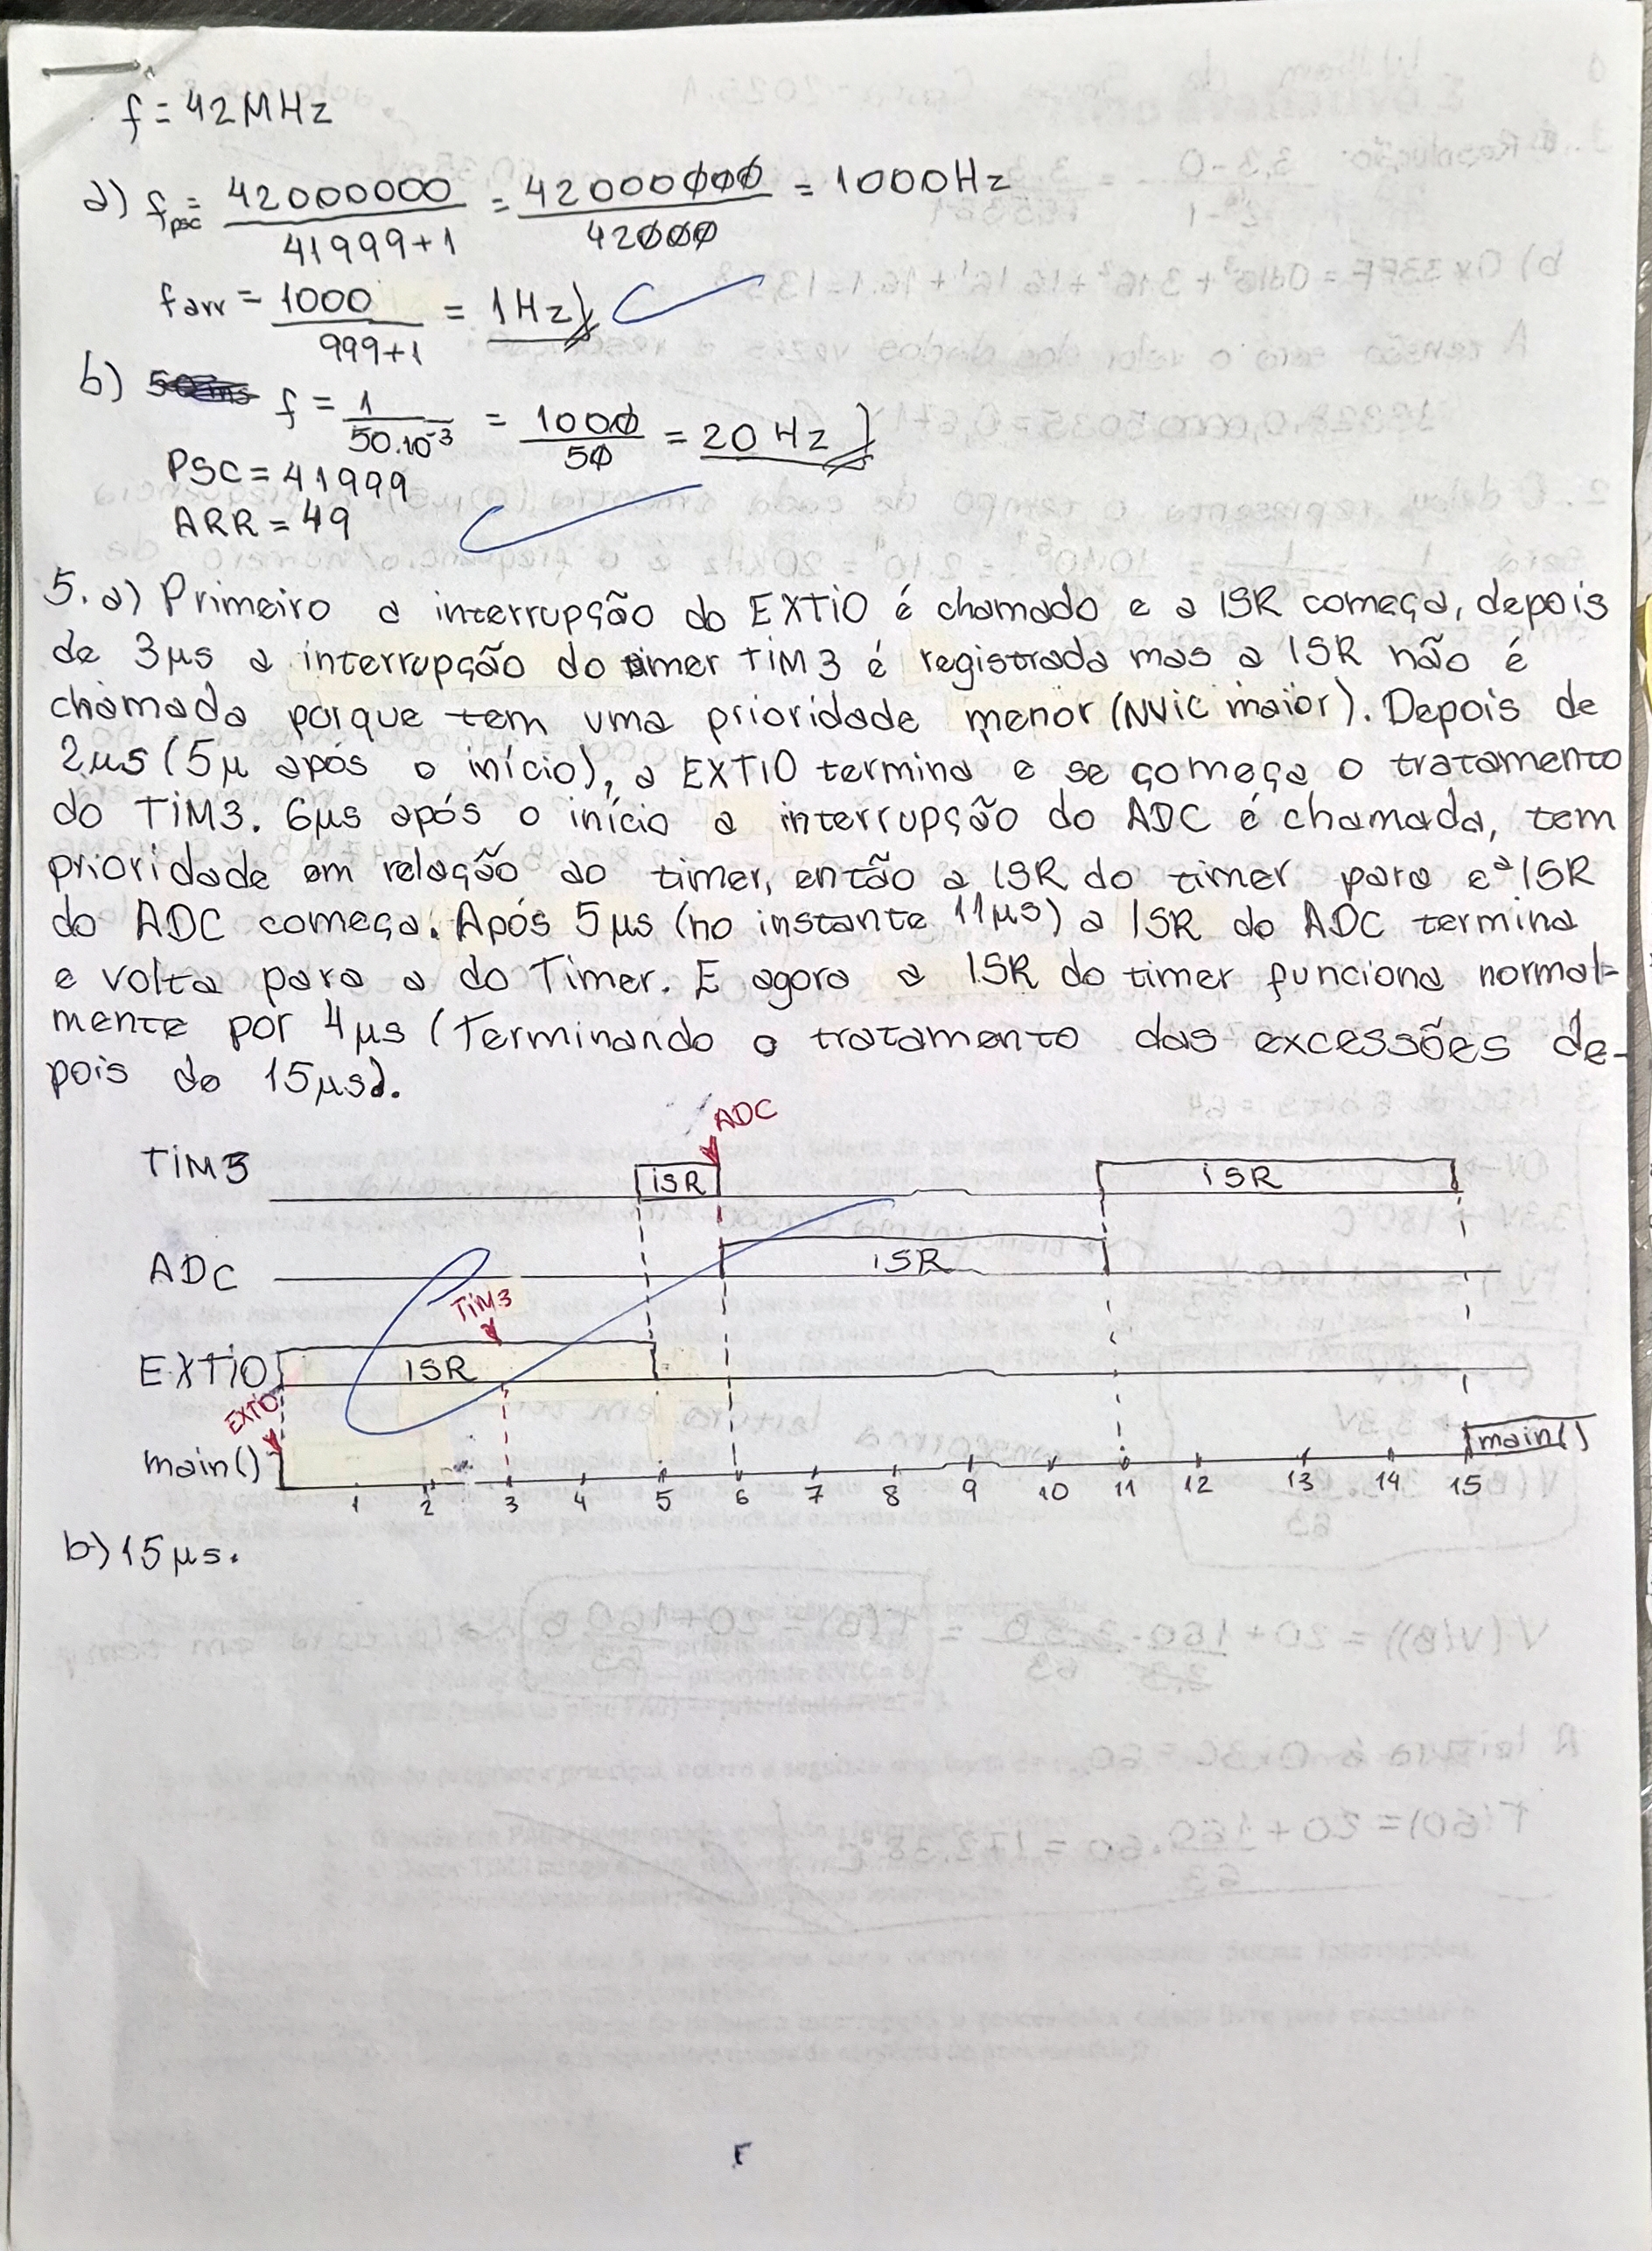 f = 42MHz
a) fpsc = 42000000 / 41999+1 = 42000000 / 42000 = 1000Hz
farr = 1000 / 999+1 = 1Hz
b) f = 1 / 50.10^-3 = 1000 / 50 = 20 Hz
PSC = 41999
ARR = 49
5. a) Primeiro a interrupção do EXTi0 é chamado e a ISR começa, depois
de 3μs a interrupção do timer TiM3 é registrada mas a ISR não é
chamada porque tem uma prioridade menor (NViC maior). Depois de
2μs (5μ após o início), a EXTI0 termina e se começa o tratamento
do TiM3. 6μs após o início a interrupção do ADC é chamada, tem
prioridade em relação ao timer, então a ISR do timer para e a ISR
do ADC começa. Após 5μs (no instante 11μs) a ISR do ADC termina
e volta para a do Timer. E agora a ISR do timer funciona normal=
mente por 4μs (Terminando o tratamento das excessões de-
pois de 15μs).
ADC
TiM3 iSR iSR
ADC iSR
TiM3
EXTi0 ISR
EXTi0
main() main()
1 2 3 4 5 6 7 8 9 10 11 12 13 14 15
b) 15μs.